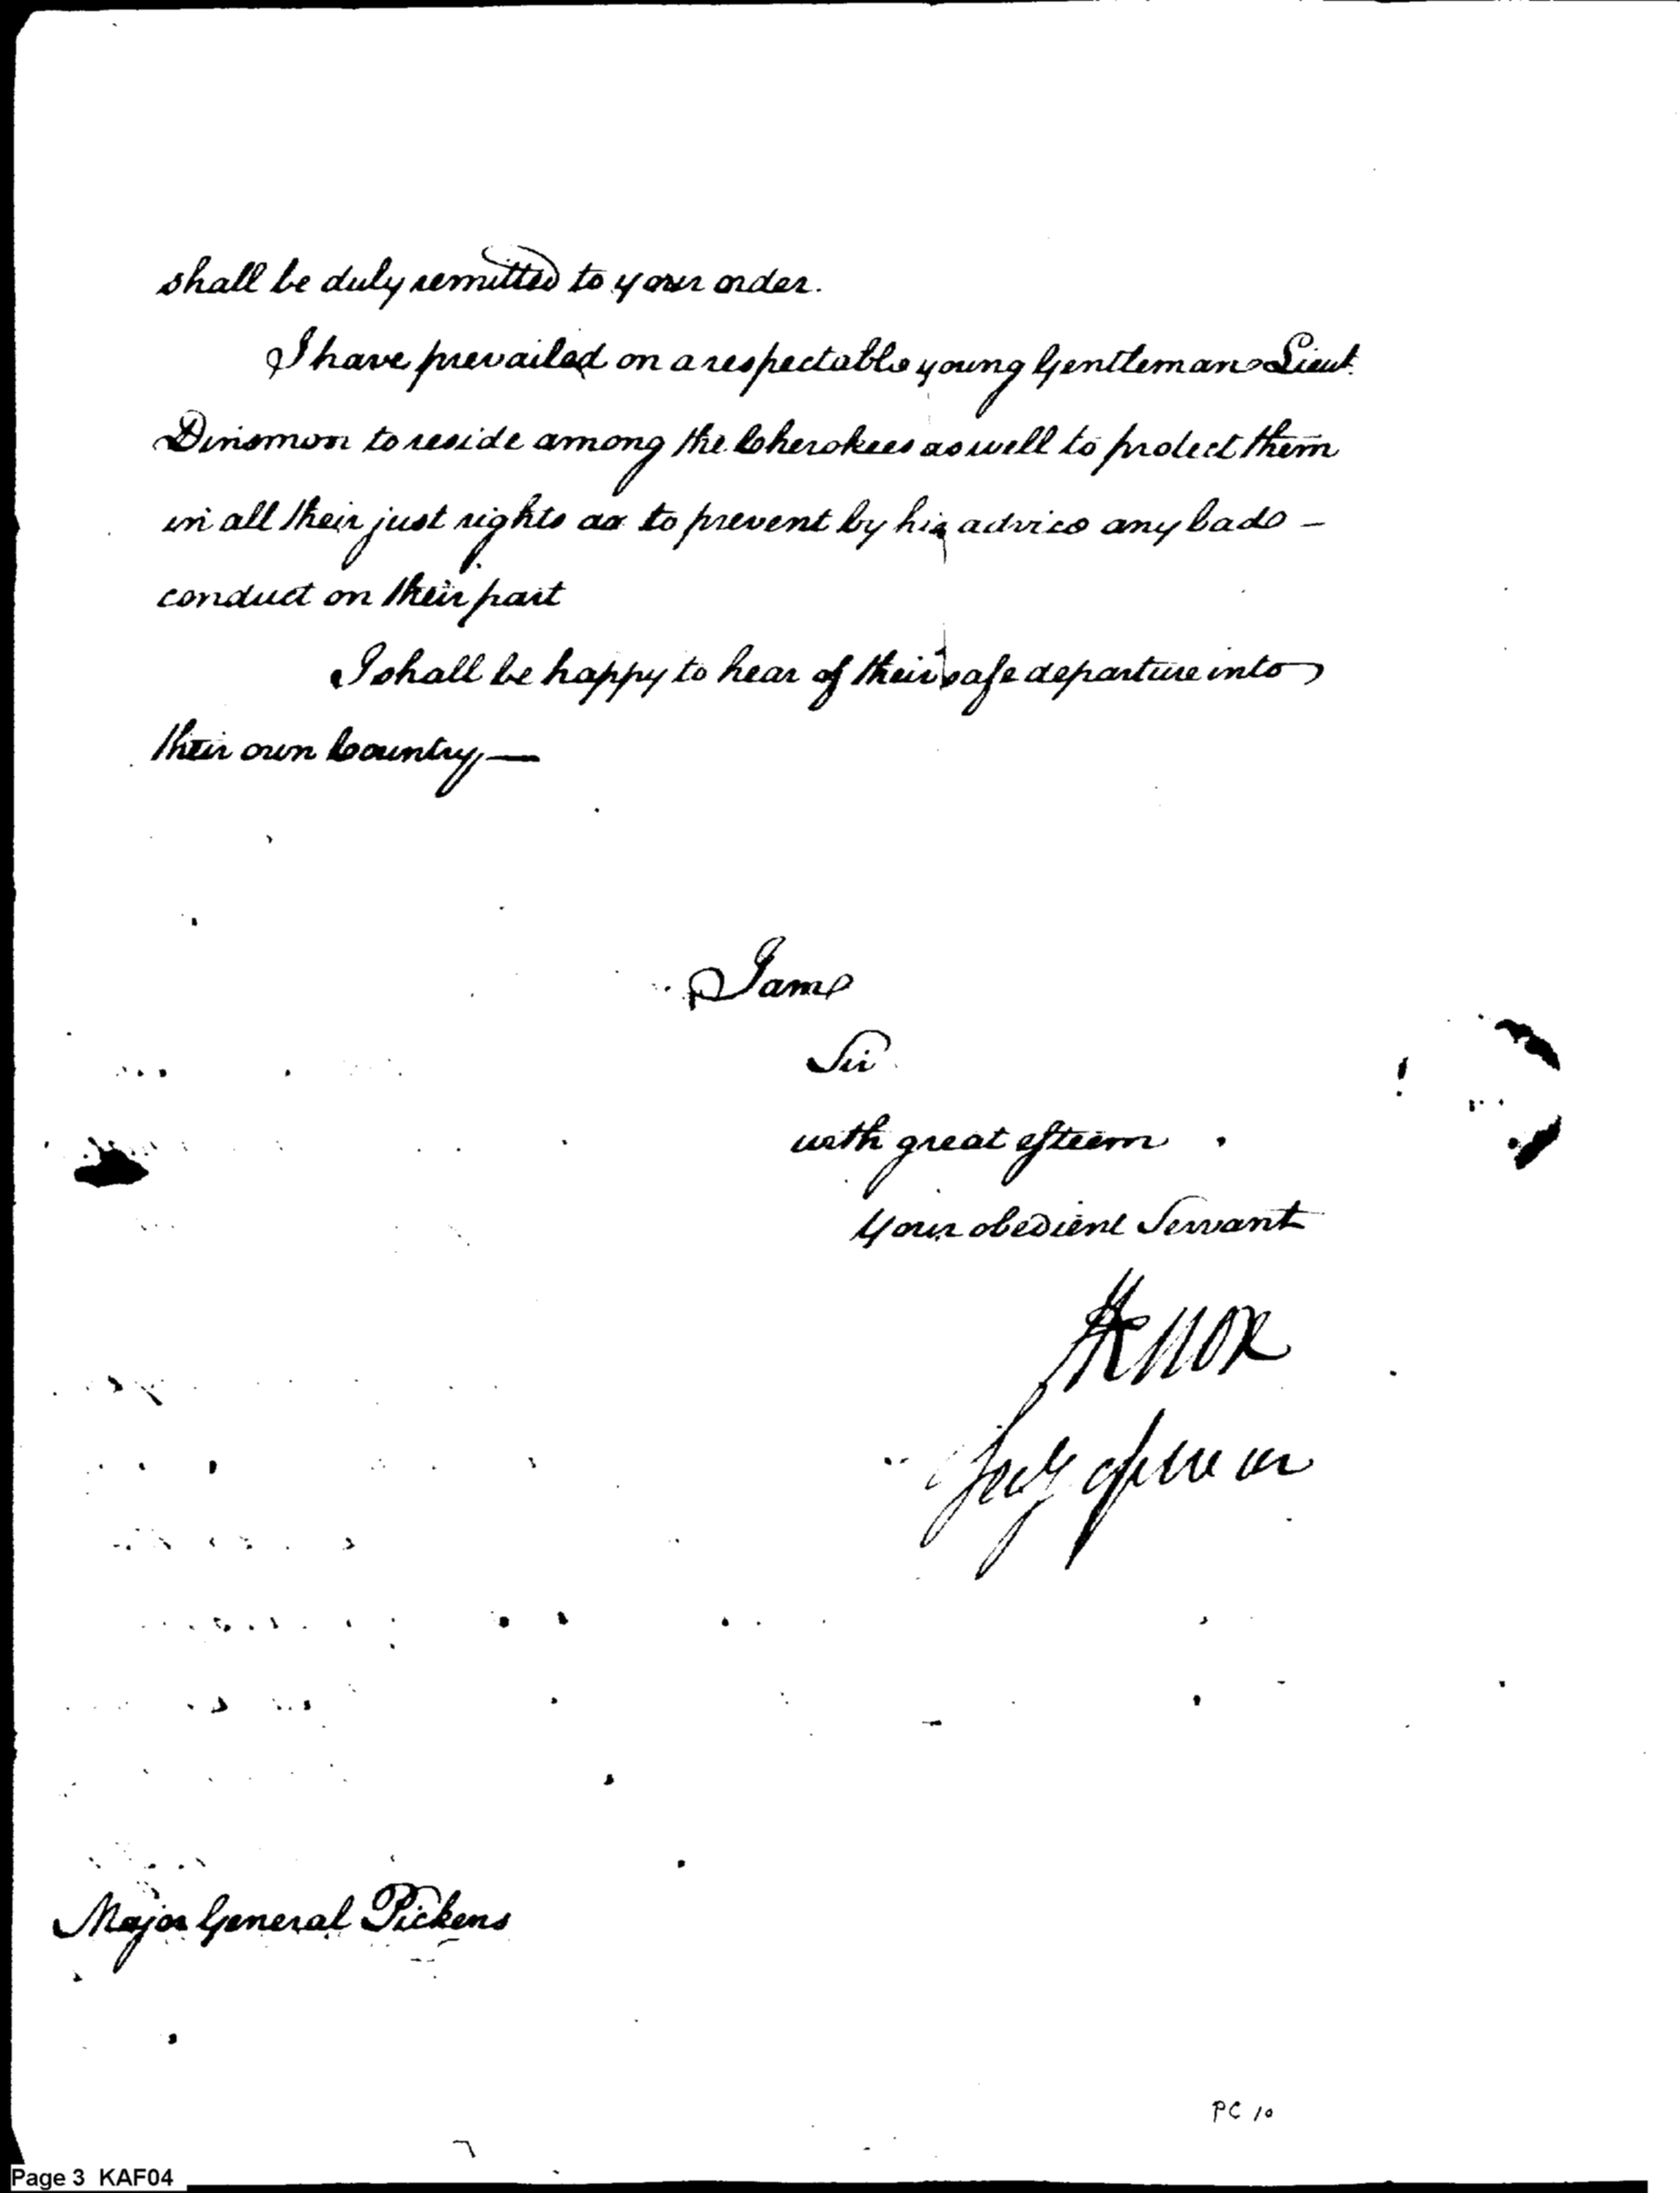 shall be duly remitted to your order.
I have prevailed on a respectable young Gentleman Lieut.
Dinsmoor to reside among the Cherokees as well to protect them
in all their just rights as to prevent by his advice any bad –
conduct on their part
I shall be happy to hear of their safe departure into
their own Country —
I am
Sir
with great esteem
Your obedient Servant
HKnox
Secy of war
Major General Pickens
PC 10
Page 3 KAF04